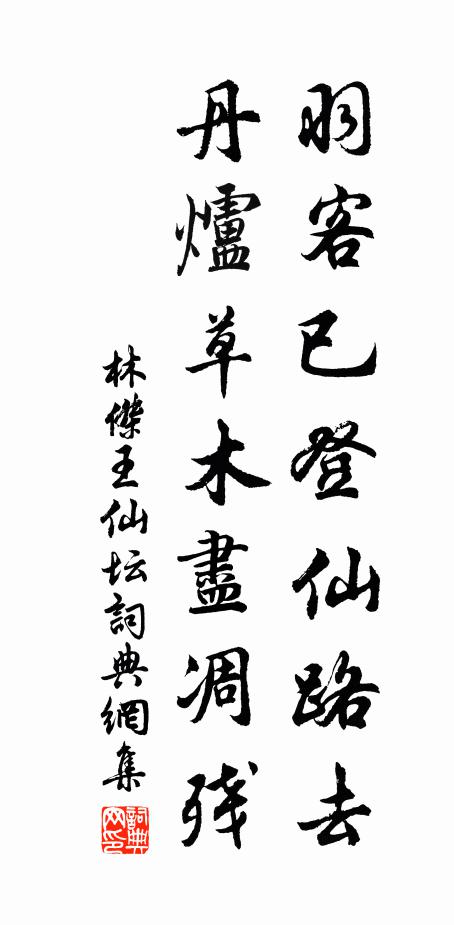 羽客已登仙路去
丹爐草木盡凋残
林傑王仙坛詞典網集
詞典网印